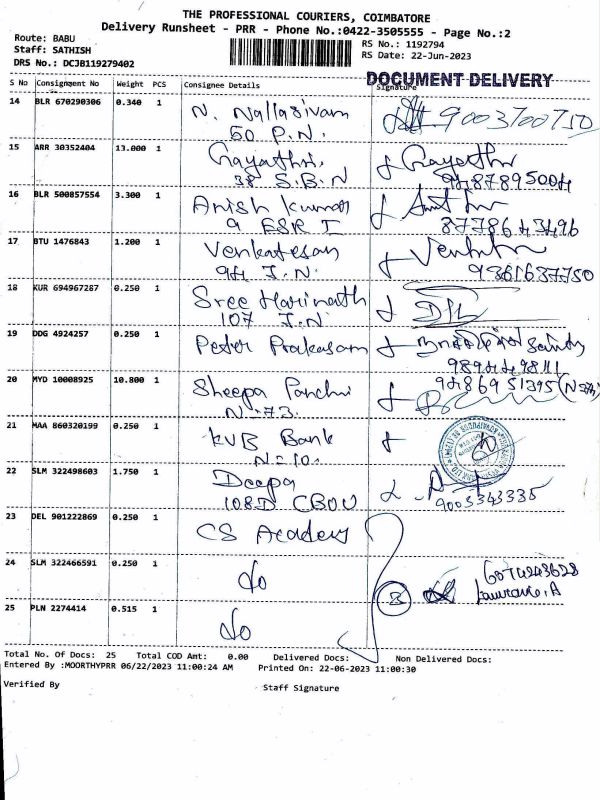 THE PROFESSIONAL COURIERS, COIMBATORE
Delivery Runsheet - PRR - Phone No.:0422-3505555 - Page No.:2
Route: BABU
Staff: SATHISH
DRS No.: DCJB119279402
RS No.: 1192794
RS Date: 22-Jun-2023
DOCUMENT DELIVERY
S No Consignment No Weight PCS Consignee Details Signature
14 BLR 670290306 0.340 1 N. Nallasivam 9003700750
60 P.N.
15 ARR 30352404 13.000 1 Gayathri, Gayathri
38 S.B.N 9487895004
16 BLR 500857554 3.300 1 Anish Kumar
9 ESR I 8778643496
17 BTU 1476843 1.200 1 Venkatesan
94 J.N. 9361637750
18 KUR 694967287 0.250 1 Sree Harinath
107 J.N
19 DDG 4924257 0.250 1 Peter Prakasam
9894449811
20 MYD 10008925 10.800 1 Sheepa 9486951395
N-73.
21 MAA 860320199 0.250 1 KVB Bank
N-10.
22 SLM 322498603 1.750 1 Deepa
108D CBOU 9003343335
23 DEL 901222869 0.250 1 CS Academy
24 SLM 322466591 0.250 1 do
25 PLN 2274414 0.515 1 do
Total No. Of Docs: 25 Total COD Amt: 0.00 Delivered Docs: Non Delivered Docs:
Entered By :MOORTHYPRR 06/22/2023 11:00:24 AM Printed On: 22-06-2023 11:00:30
Verified By Staff Signature